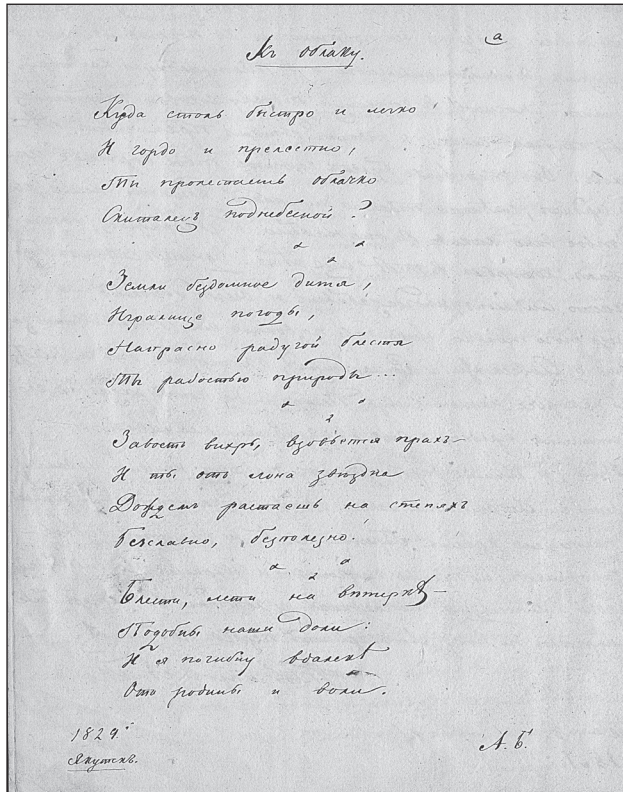 а
Къ облаку.
Куда столь быстро и легко
И гордо и прелестно,
Ты пролетаешь облачко
Скиталецъ поднебесной?
Земли бездомное дитя,
Игралище погоды,
Напрасно радугой блестя
Ты радостью природы...
Завоетъ вихрь, взовьется прахъ—
И ты отъ лона звѣздна
Дождемъ растаешь на степяхъ
Безславно, безполезно!
Блести, лети на вѣтеркѣ—
Подобны наши доли:
И я погибну вдалекѣ
Отъ родины и воли.
1829.
Якутскъ.
А. Б.